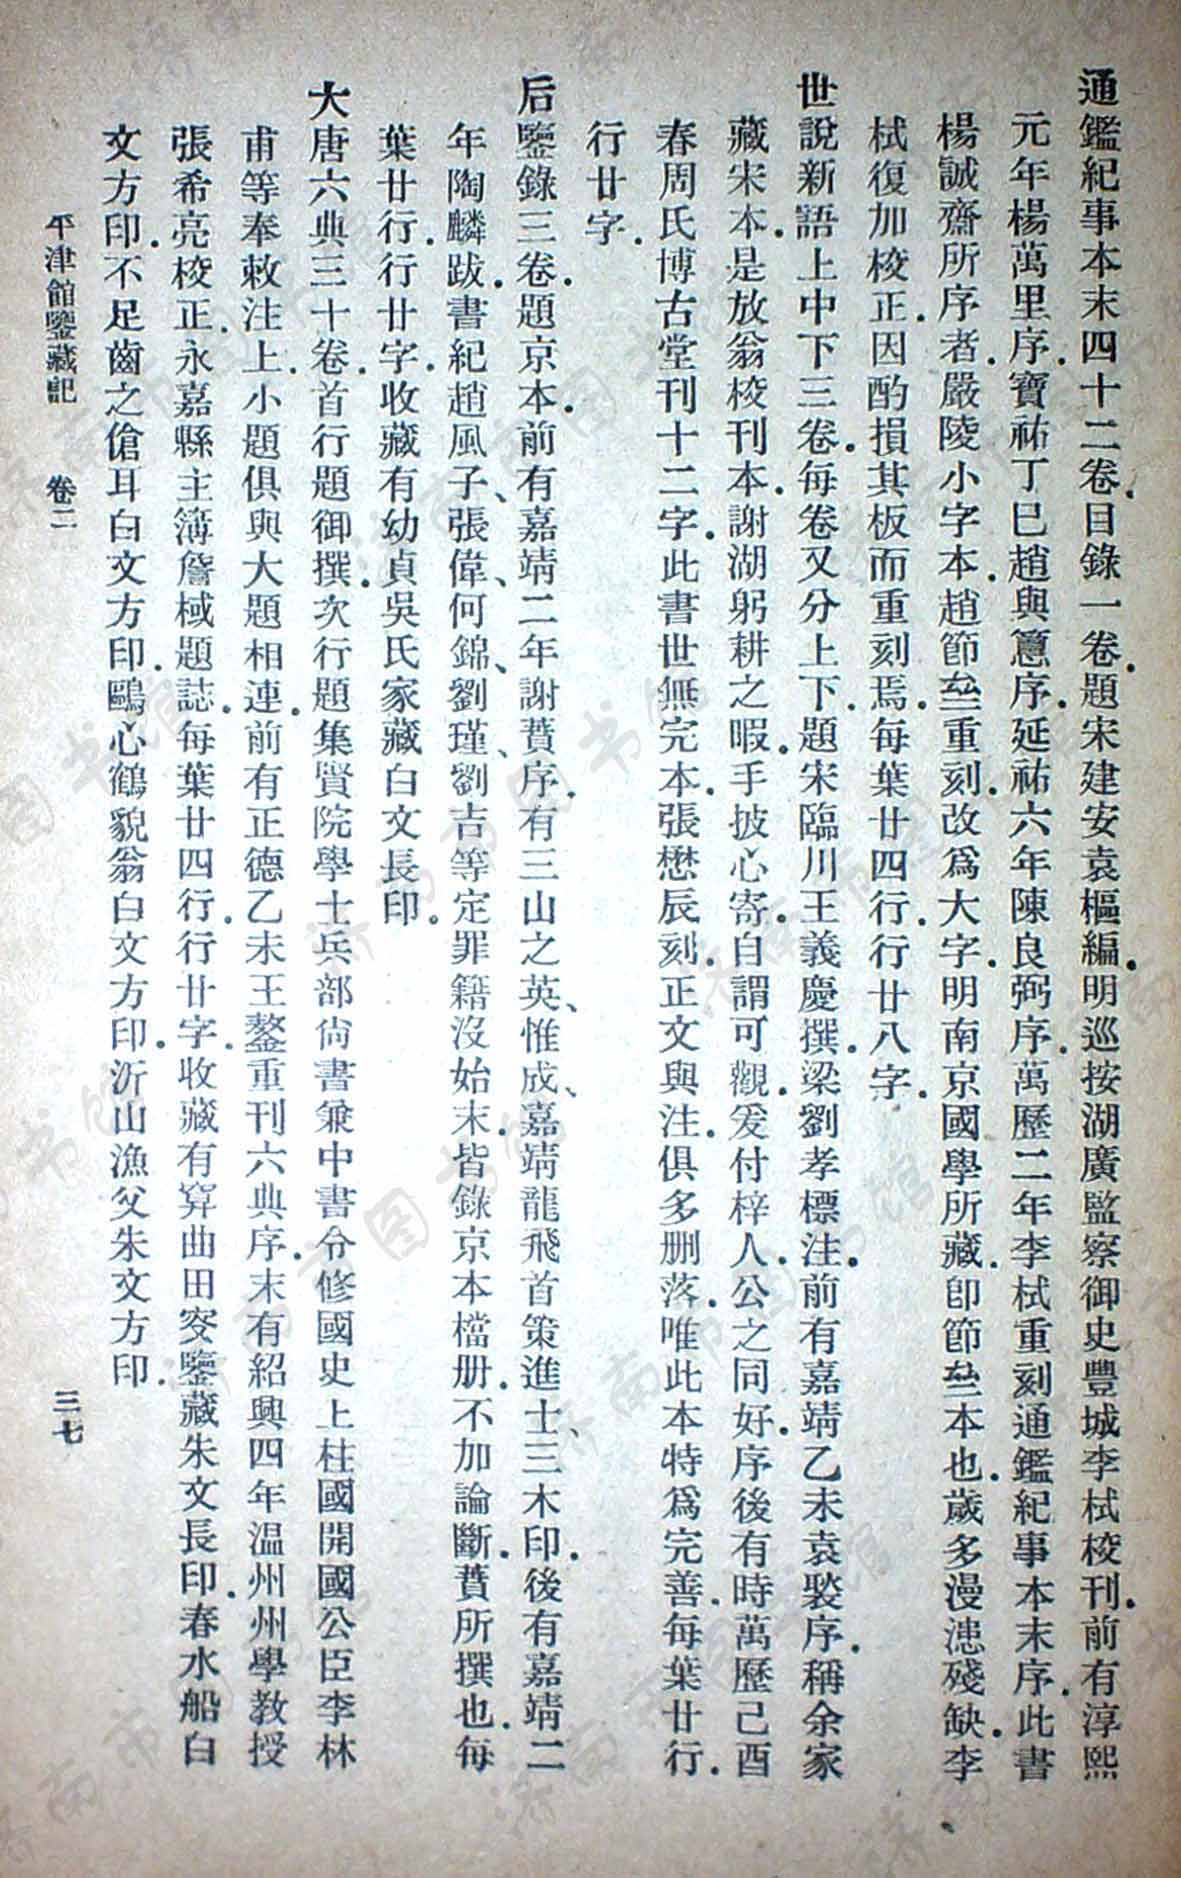 通鑑紀事本末四十二卷.目錄一卷.題宋建安袁樞編.明巡按湖廣監察御史豐城李栻校刊.前有淳熙
元年楊萬里序.寶祐丁巳趙與𥲅序.延祐六年陳良弼序.萬歷二年李栻重刻通鑑紀事本末序.此書
楊誠齋所序者.嚴陵小字本.趙節𡊮重刻.改爲大字.明南京國學所藏.卽節𡊮本也.歲多漫漶殘缺.李
栻復加校正.因酌損其板而重刻焉.每葉廿四行.行廿八字.
世說新語上中下三卷.每卷又分上下.題宋臨川王義慶撰.梁劉孝標注.前有嘉靖乙未袁褧序.稱余家
藏宋本.是放翁校刊本.謝湖躬耕之暇.手披心寄.自謂可觀.爰付梓人.公之同好.序後有時萬歷己酉
春周氏博古堂刊十二字.此書世無完本.張懋辰刻.正文與注.俱多刪落.唯此本特爲完善.每葉廿行.
行廿字.
后鑒錄三卷.題京本.前有嘉靖二年謝蕡序.有三山之英、惟成、嘉靖龍飛首策進士、三木印.後有嘉靖二
年陶麟跋.書紀趙風子、張偉、何錦、劉瑾、劉吉等定罪籍沒始末.皆錄京本檔册.不加論斷.蕡所撰也.每
葉廿行.行廿字.收藏有幼貞吳氏家藏白文長印.
大唐六典三十卷.首行題御撰.次行題集賢院學士兵部尙書兼中書令修國史上柱國開國公臣李林
甫等奉敕注上.小題俱與大題相連.前有正德乙未王鏊重刊六典序.末有紹興四年温州州學教授
張希亮校正.永嘉縣主簿詹棫題誌.每葉廿四行.行廿字.收藏有穽曲田安鑒藏朱文長印.春水船白
文方印.不足齒之傖耳白文方印.鷗心鶴貌翁白文方印.沂山漁父朱文方印.
平津館鑒藏記 卷二 三七
济南市图书馆